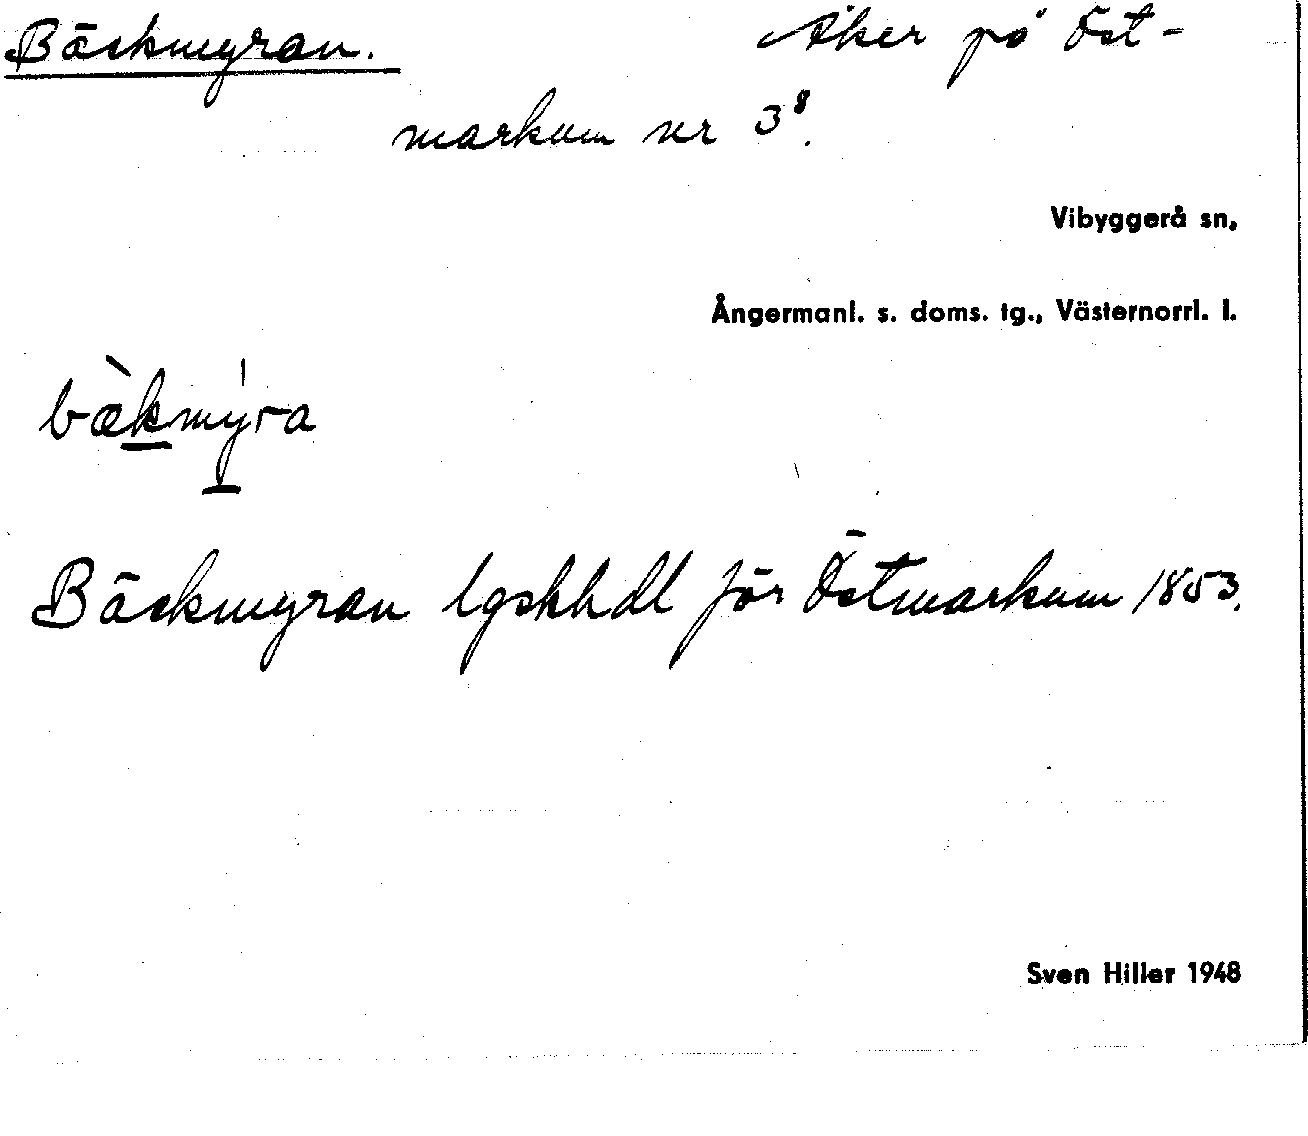 Bäckmyran. Åker på Öst-
markum nr 3⁸.
Vibyggerå sn,
Ångermanl. s. doms. tg., Västernorrl. l.
bæ̀kmýra
Bäckmyran lgskhdl för Östmarkum 1853.
Sven Hiller 1948